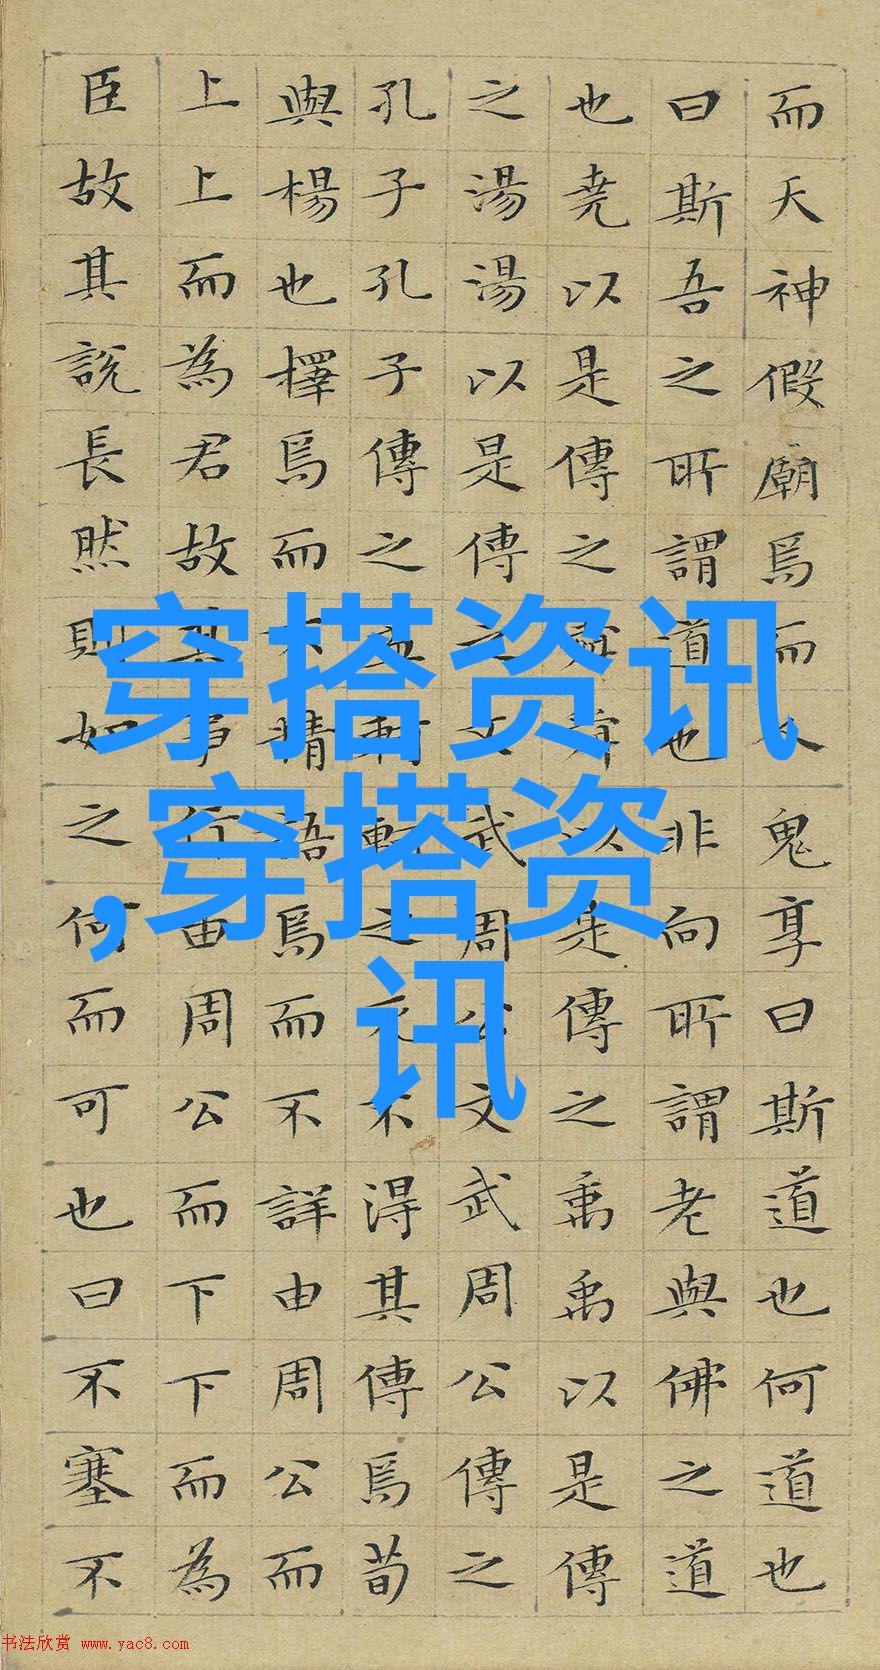 而天神假廟焉而人鬼享曰斯道也何道也
曰斯吾之所謂道也非向所謂老與佛之道
也堯以是傳之舜舜以是傳之禹禹以是傳
之湯湯以是傳之文武周公文武周公傳之
孔子孔子傳之孟軻軻之死不得其傳焉荀
與楊也擇焉而不精語焉而不詳由周公而
上上而為君故其事行由周公而下下而為
臣故其說長然則如之何而可也曰不塞不
穿搭资讯
,穿搭资
讯
书法欣赏 www.yac8.com